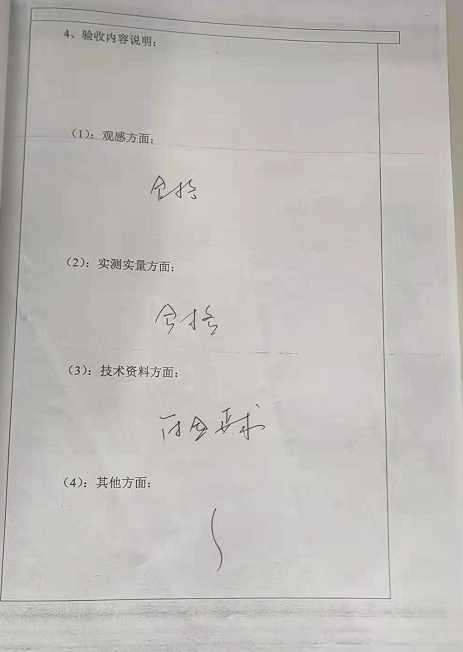 4、验收内容说明：
（1）：观感方面：
合格
（2）：实测实量方面：
合格
（3）：技术资料方面：
符合要求
（4）：其他方面：